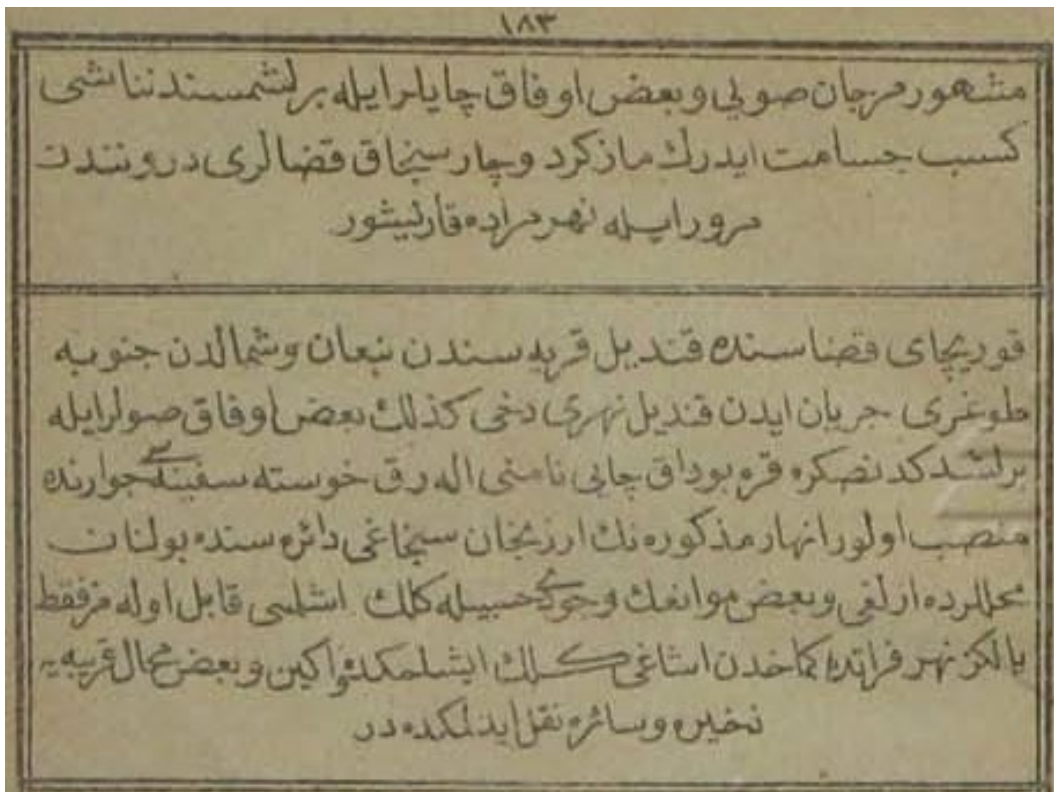 ١٨٣
مشهور مرجان صویی و بعض اوفاق چایلر ایله برلشمسندن ناشی
کسب جسامت ایدرك مازکرد و چارسنجاق قضالری دروننـدن
مرور ایـله نهر مراده قاریشور
قوریچای قضاسنده قندیل قریه سندن نبعان و شمالدن جنوبه
طوغری جریان ایدن قندیل نهری دخی کذلك بعض اوفاق صولر ایله
برلشدکدنصکره قره بوداق چایی نامنی اله رق خوسته سفینه جوارنده
منصب اولور انهار مذکوره نك ارزنجان سنجاغی دائره سنده بولنان
محللرده ازلغی و بعض موانعك وجودی حسبیله کلك اشلمسی قابل اوله مز فقط
یالکز نهر فراتده کماخدن اشاغی کلك ایشلمکده و اکین و بعض محال قریبه یه
ذخیره و سائره نقل ایدلمکده در